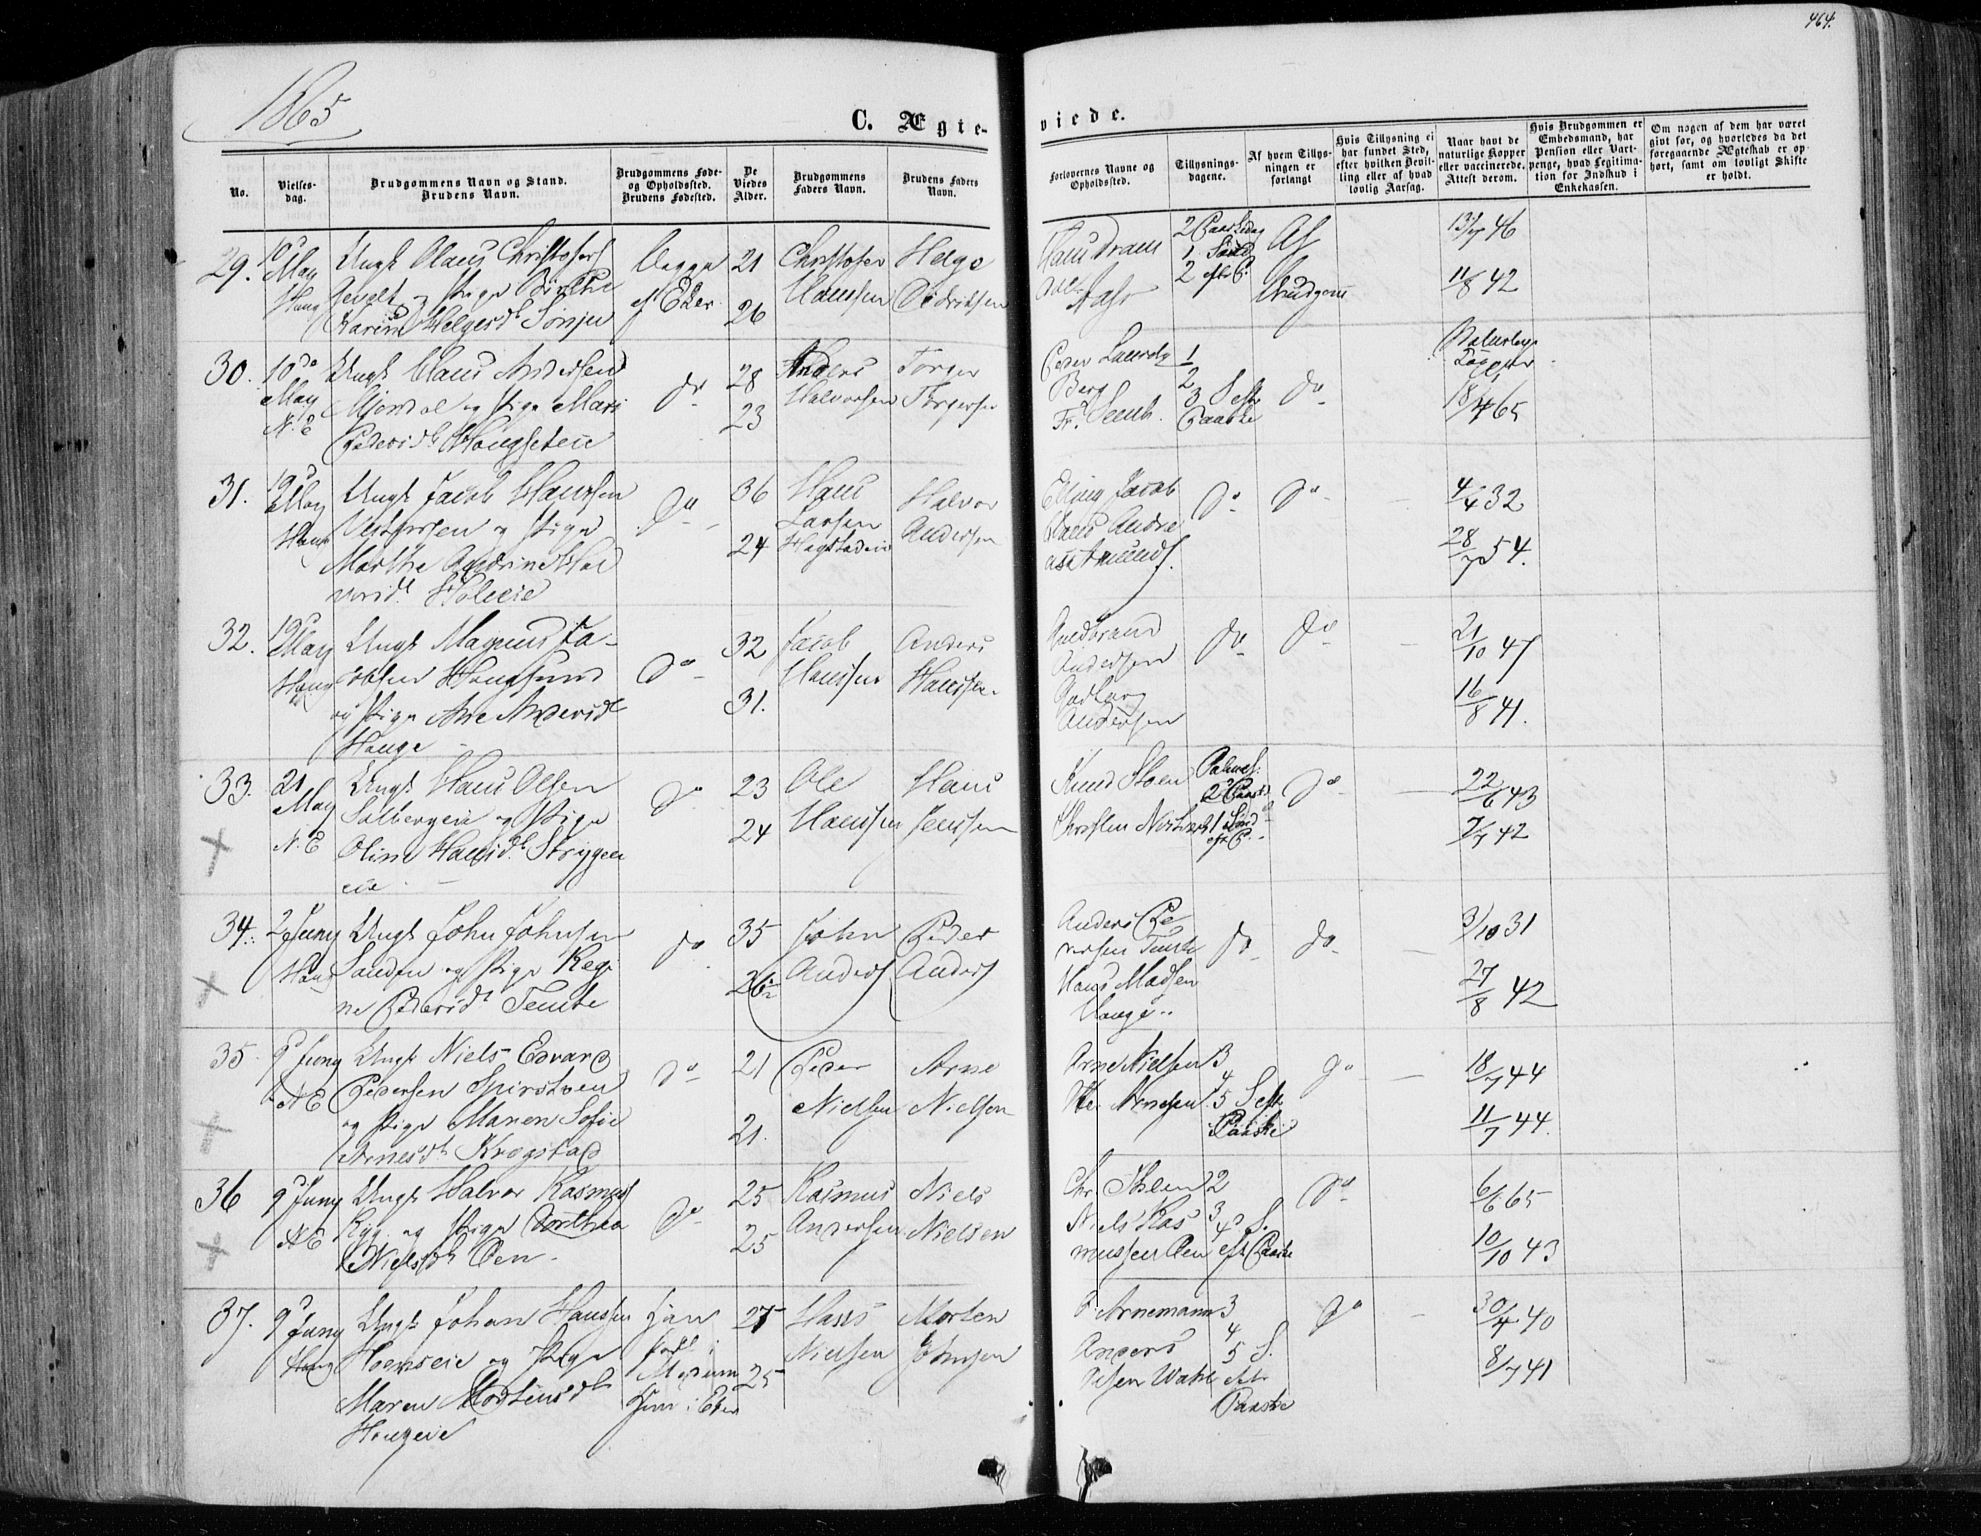 464.
1865
C. Ægte-
viede.
No.
Vielses-
dag.
Brudgommens Navn og Stand.
Brudens Navn.
Brudgommens Føde-
og Opholdssted.
Brudens Fødested.
De
Viedes
Alder.
Brudgommens
Faders Navn.
Brudens Faders
Navn.
Forlovernes Navne og
Opholdssted.
Tillysnings-
dagene.
Af hvem Tillys-
ningen er
forlangt
Hvis Tillysning ei
har fundet Sted,
efter hvilken Bevil-
ling eller af hvad
lovlig Aarsag.
Naar havt de
naturlige Kopper
eller vaccinerede.
Attest derom.
Hvis Brudgommen er
Embedsmand, har
Pension eller Vart-
penge, hvad Legitima-
tion for Indskud i
Enkekassen.
Om nogen af dem har været
gift før, og hvorledes da det
foregaaende Ægteskab er op-
hørt, samt om lovligt Skifte
er holdt.
29.
May
Haug
Ungk Olaus Christofers
og Pige Birthe
Karine Helgersd.
Begge
af Eker
21
26
Christofer
Hanssen
Helge
Didriksen
2 Paaskedag
1 Sønd
2 eft P.
Af
Brudgom
13/7 46
11/8 42
30.
10do
May
N.E
Ungk Claus Andersen
Mjøndal og Pige Mari
Pedersd. Hougseteie
do
28
23
Anders
Halvorsen
Torger
Torgersen
Berg
Fr. Semb.
1
2
3 S eft
Paaske
do
18/4 65
31.
May
Haug
Ungk Jacob Hanssen
Vestfossen og Pige
Marthe Andrine Hal
vorsd. Holeeie
do
36
24
Hans
Larsen
Halvor
Andersen
Elling Jacob
Hans Andre
as Amunds.
do
do
4/4 32
28/7 54.
32.
May
Haug
Ungk Magnus Ja-
cobsen Hougsund
og Pige Ane Andersd
Houge
do
32
31.
Jacob
Hanssen
Anders
Hanssen
Andersen
Andersen
do
do
21/10 47
16/8 41.
33.
21
May
N.E
Ungk Hans Olsen
Solbergeie og Pige
Oline Hansd. Stryken
eie
do
23
24
Ole
Hanssen
Hans
Jenssen
Knud Steen
Palmes.
2 Paasked
1 Sønd
eft P.
do
22/6 43
7/7 42
34.
2 Juny
Haug
Ungk John Johnsen
Sanden og Pige Regi
ne Pedersd. Temte
do
35
26½
John
Anders
Peder
Anders
Anders Pe
dersen Temte
Hans Madsen
Houge
do
do
3/10 31
27/8 42
35.
9 Juny
N E
Ungk Niels Edvard
Pedersen Spirstoen
og Pige Maren Sofie
Arnesdt Krogstad
do
21
21.
Peder
Nielsen
Arne
Nielsen
Arne Nielsen
Arnesen
3
4
5 S eft
Paaske
do
18/7 44
11/7 44.
36
9 Juny
N E
Ungk Halvor Rasmus
Ryg og Pige Dorthea
Nielsdt Øen
do
25
25
Rasmus
Andersen
Niels
Nielsen
Chr. Steen
Niels Ras
mussen Øen
2
3
4 S.
eft Paaske
do
6/6 65
10/10 43
37.
9 Juny
Haug
Ungk Johan Hanssen
Hoenseie og Pige
Maren Mortensdt
Hougeie
Han
født i
Modum
Hun i Eker
27
25
Hans
Nielsen
Morten
Johnsen
F. Arnemann
Anders
Olsen
3
4
5 S.
eft
Paaske
do
30/4 40
8/7 41